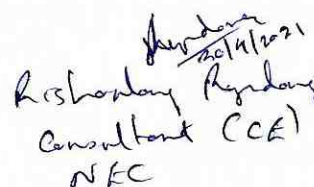 Ryndong
20/4/2021
Rishanlang Ryndong
Consultant (CE)
NEC